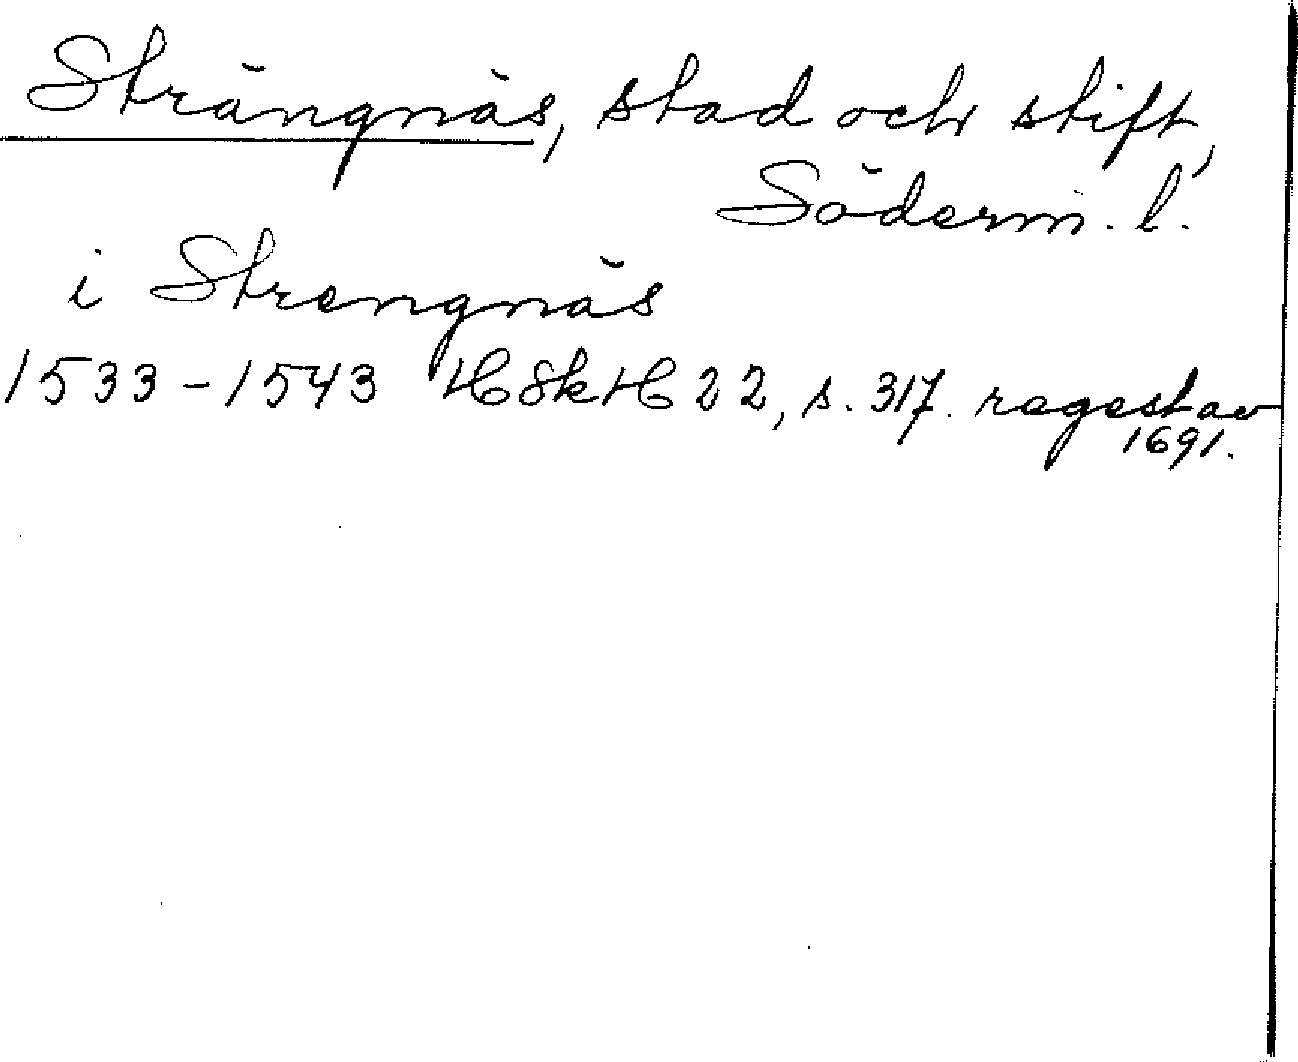 Strängnäs, stad och stift,
Söderm. l.
i Strengnäs
1533-1543 HSkH 22, s. 317. ragestav
1691.